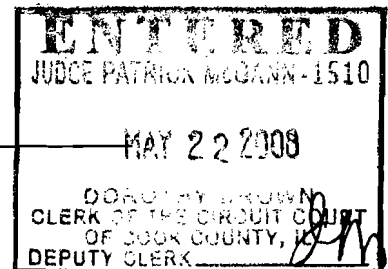 ENTERED
JUDGE PATRICK McGANN-1510
MAY 22 2008
DOROTHY BROWN
CLERK OF THE CIRCUIT COURT
OF COOK COUNTY, IL
DEPUTY CLERK